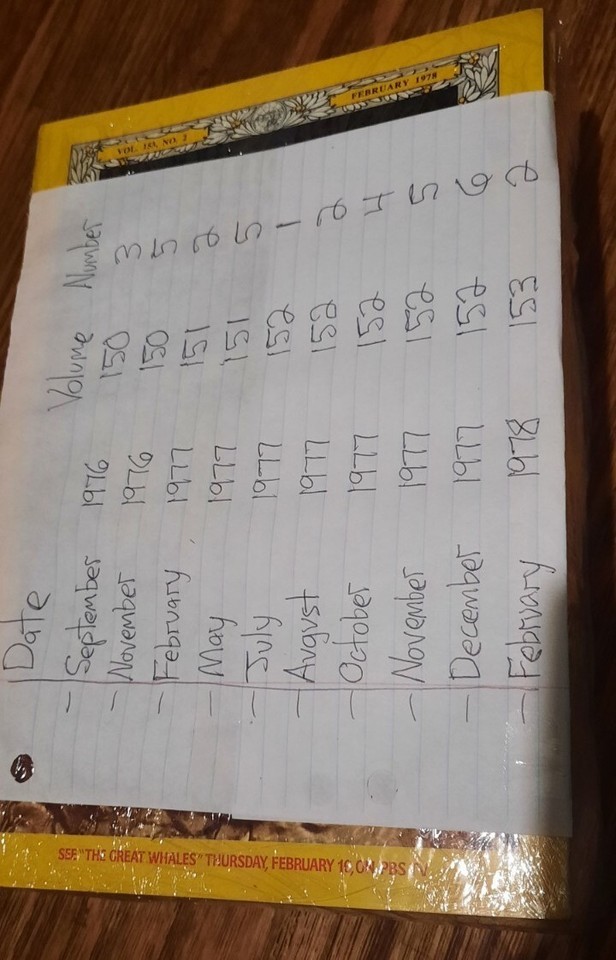 VOL. 153, NO. 2
FEBRUARY 1978
Date Volume Number
- September 1976 150 3
- November 1976 150 5
- February 1977 151 2
- May 1977 151 5
- July 1977 152 1
- August 1977 152 2
- October 1977 152 4
- November 1977 152 5
- December 1977 152 6
- February 1978 153 2
SEE "THE GREAT WHALES" THURSDAY, FEBRUARY 16, ON PBS TV